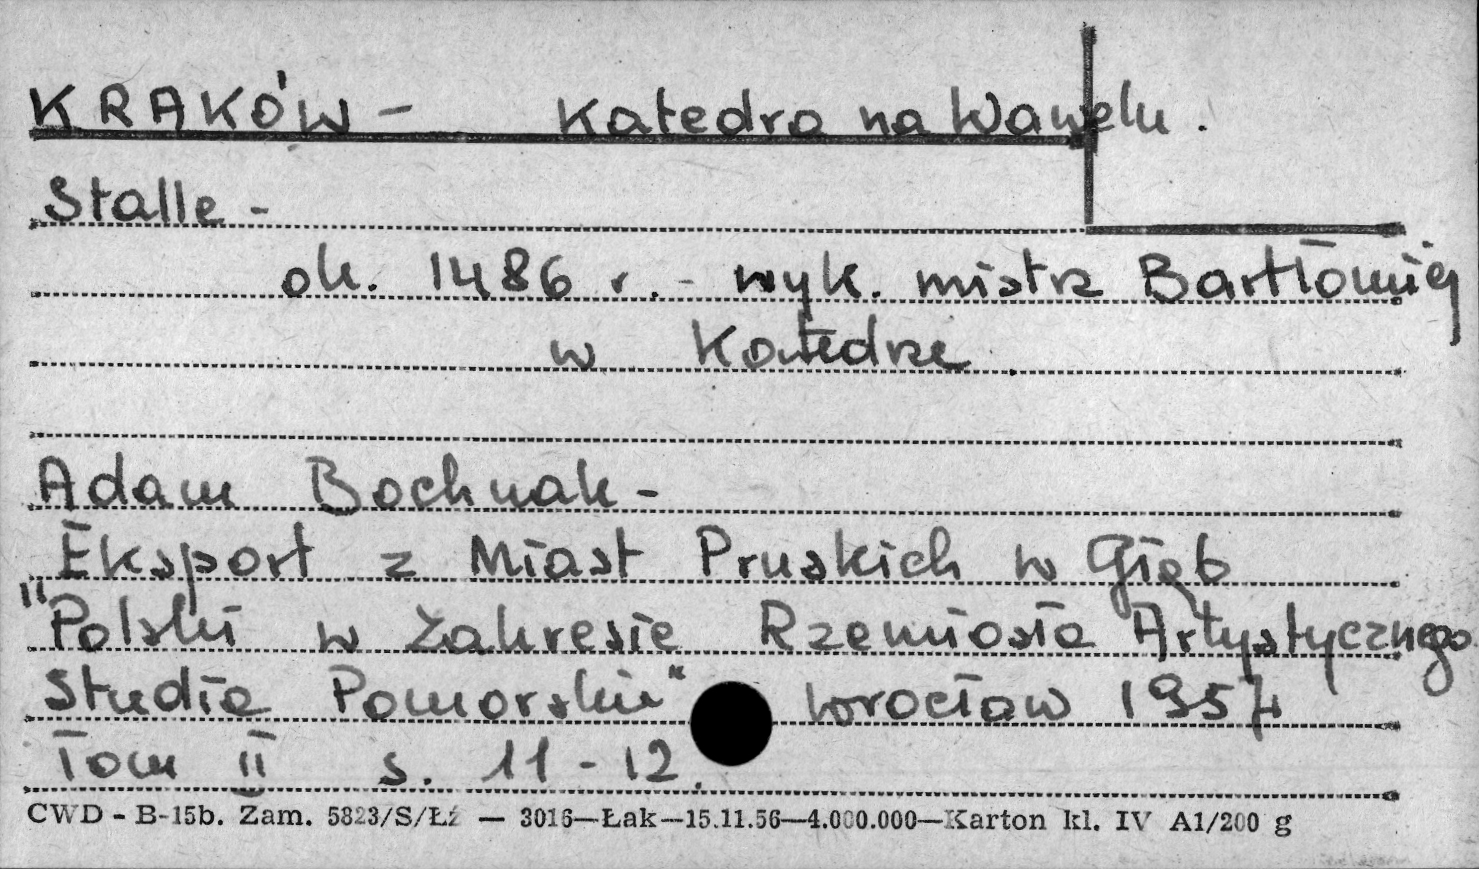 KRAKÓW - Katedra na Wawelu.
Stalle -
ok. 1486 r. - wyk. mistrz Bartłomiej
w Katedrze
Adam Bochnak -
Eksport z Miast Pruskich w Głąb
"Polski w Zakresie Rzemiosła Artystycznego
Studia Pomorskie" Wrocław 1957
Tom II s. 11-12.
CWD - B-15b. Zam. 5823/S/Łź — 3016—Łak—15.11.56—4.000.000—Karton kl. IV A1/200 g